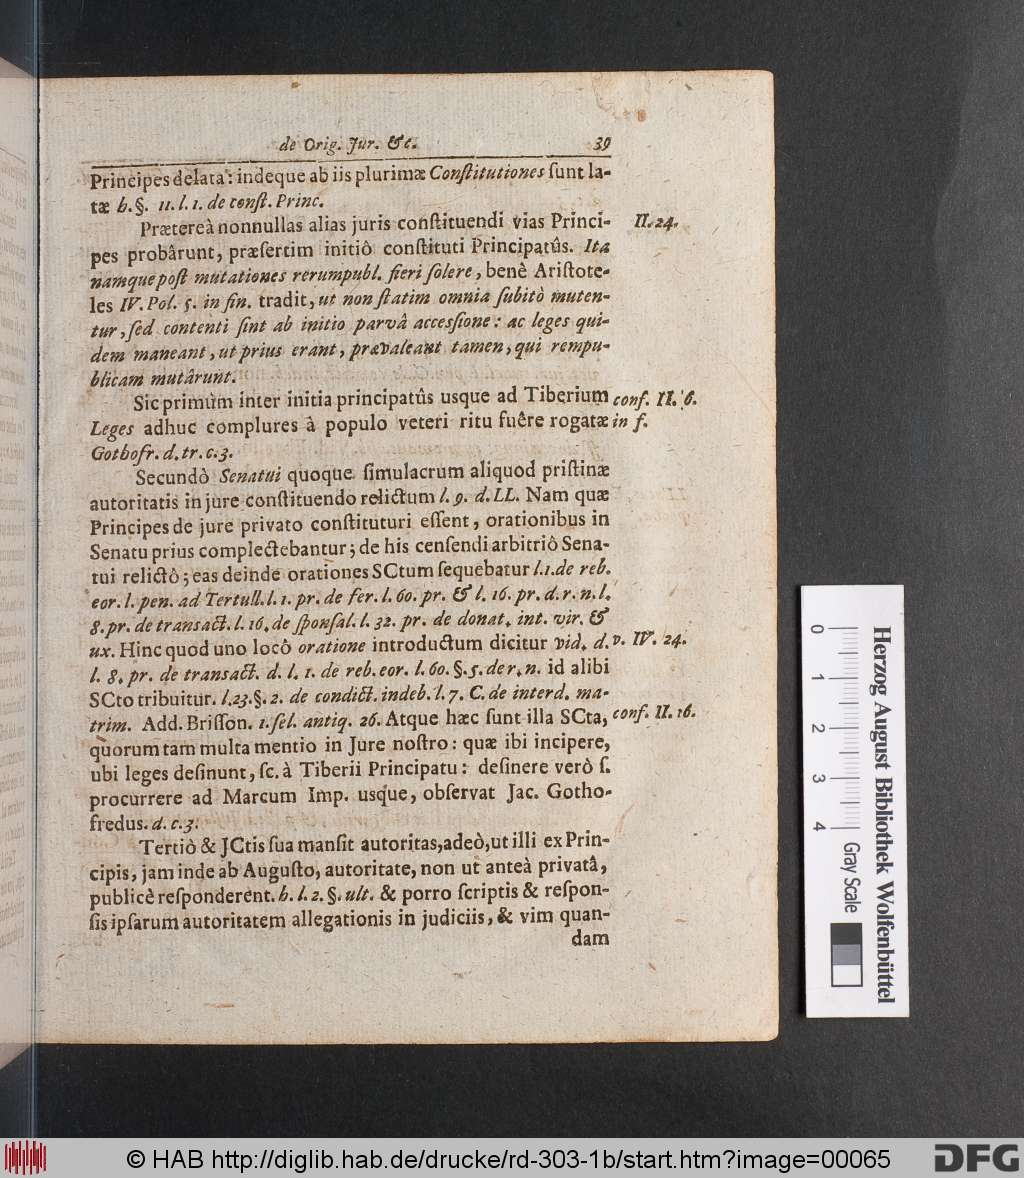 de Orig. Jur. &c. 39
Principes delata: indeque ab iis plurimæ Constitutiones sunt la-
tæ h. §. 11. l. 1. de const. Princ.
Prætereà nonnullas alias juris constituendi vias Princi- II. 24.
pes probârunt, præsertim initiô constituti Principatûs. Ita
namque post mutationes rerumpubl. fieri solere, benè Aristote-
les IV. Pol. 5. in fin. tradit, ut non statim omnia subitò muten-
tur, sed contenti sint ab initio parvâ accessione: ac leges qui-
dem maneant, ut prius erant, prævaleant tamen, qui rempu-
blicam mutârunt.
Sic primùm inter initia principatûs usque ad Tiberium conf. II. 6.
Leges adhuc complures à populo veteri ritu fuêre rogatæ in f.
Gothofr. d. tr. c. 3.
Secundò Senatui quoque simulacrum aliquod pristinæ
autoritatis in jure constituendo relictum l. 9. d. LL. Nam quæ
Principes de jure privato constituturi essent, orationibus in
Senatu prius complectebantur; de his censendi arbitriô Sena-
tui relictô; eas deinde orationes SCtum sequebatur l. 1. de reb.
eor. l. pen. ad Tertull. l. 1. pr. de fer. l. 60. pr. & l. 16. pr. d. r. n. l.
8. pr. de transact. l. 16. de sponsal. l. 32. pr. de donat. int. vir. &
ux. Hinc quod uno locô oratione introductum dicitur vid. d. v. IV. 24.
l. 8. pr. de transact. d. l. 1. de reb. eor. l. 60. §. 5. de r. n. id alibi
SCto tribuitur. l. 23. §. 2. de condict. indeb. l. 7. C. de interd. ma-
trim. Add. Brisson. 1. sel. antiq. 26. Atque hæc sunt illa SCta, conf. II. 16.
quorum tam multa mentio in Jure nostro: quæ ibi incipere,
ubi leges desinunt, sc. à Tiberii Principatu: desinere verò s.
procurrere ad Marcum Imp. usque, observat Jac. Gotho-
fredus. d. c. 3.
Tertiò & JCtis sua mansit autoritas, adeò, ut illi ex Prin-
cipis, jam inde ab Augusto, autoritate, non ut anteà privatâ,
publicè responderent. h. l. 2. §. ult. & porro scriptis & respon-
sis ipsarum autoritatem allegationis in judiciis, & vim quan-
dam
0 1 2 3 4
Gray Scale
Herzog August Bibliothek Wolfenbüttel
© HAB http://diglib.hab.de/drucke/rd-303-1b/start.htm?image=00065
DFG